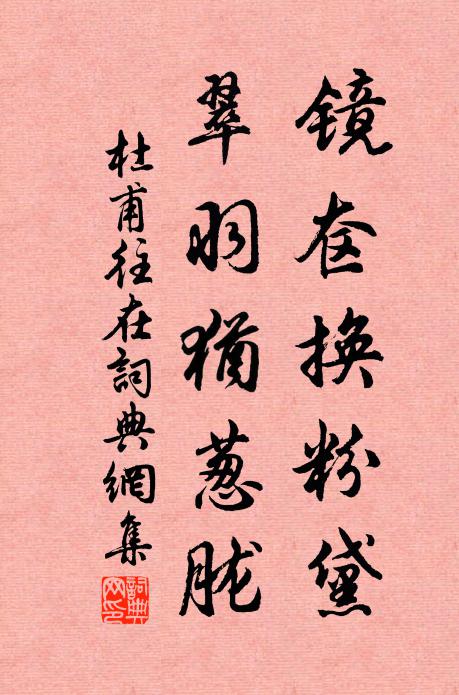 镜奁换粉黛
翠羽犹葱胧
杜甫往在詞典網集
詞典网印